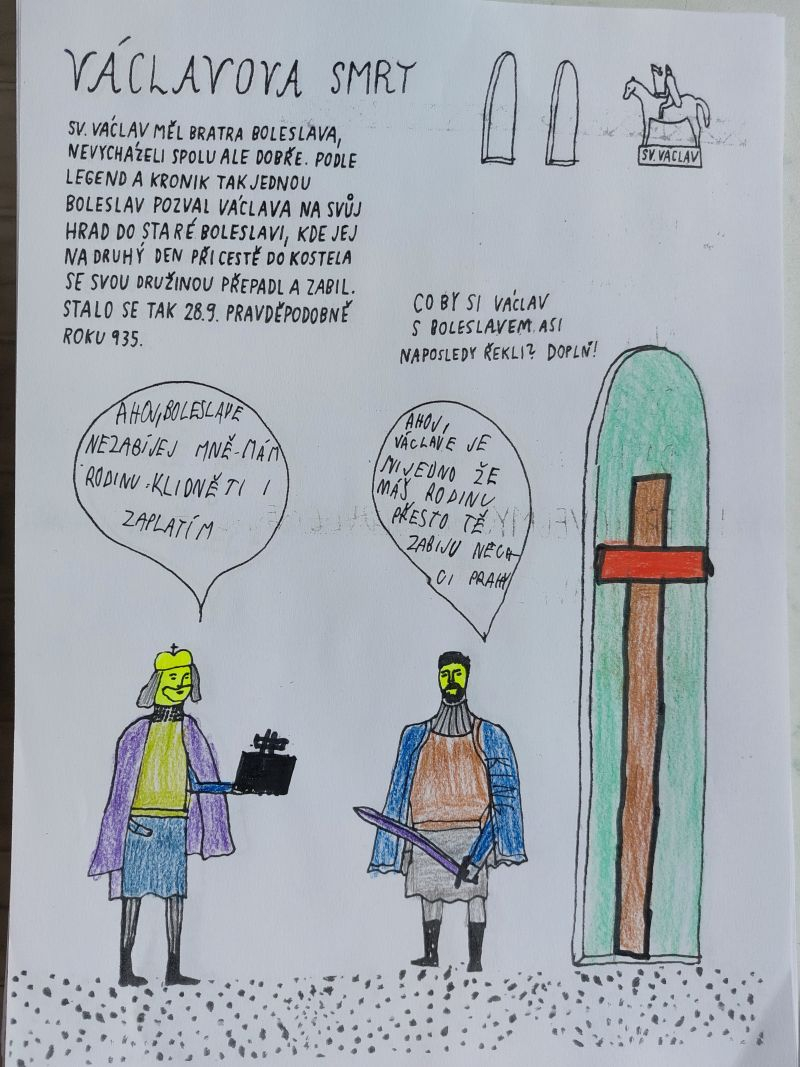 VÁCLAVOVA SMRT
SV. VÁCLAV
SV. VÁCLAV MĚL BRATRA BOLESLAVA,
NEVYCHÁZELI SPOLU ALE DOBŘE. PODLE
LEGEND A KRONIK TAK JEDNOU
BOLESLAV POZVAL VÁCLAVA NA SVŮJ
HRAD DO STARÉ BOLESLAVI, KDE JEJ
NA DRUHÝ DEN PŘI CESTĚ DO KOSTELA
SE SVOU DRUŽINOU PŘEPADL A ZABIL.
STALO SE TAK 28.9. PRAVDĚPODOBNĚ
ROKU 935.
CO BY SI VÁCLAV
S BOLESLAVEM ASI
NAPOSLEDY ŘEKLI? DOPLŇ!
AHOJ, BOLESLAVE
NEZABÍJEJ MNĚ-MÁM
RODINU-KLIDNĚ TI I
ZAPLATÍM
AHOJ,
VÁCLAVE JE
MI JEDNO ŽE
MÁŠ RODINU
PŘESTO TĚ
ZABIJU NECH
CI PRAHY